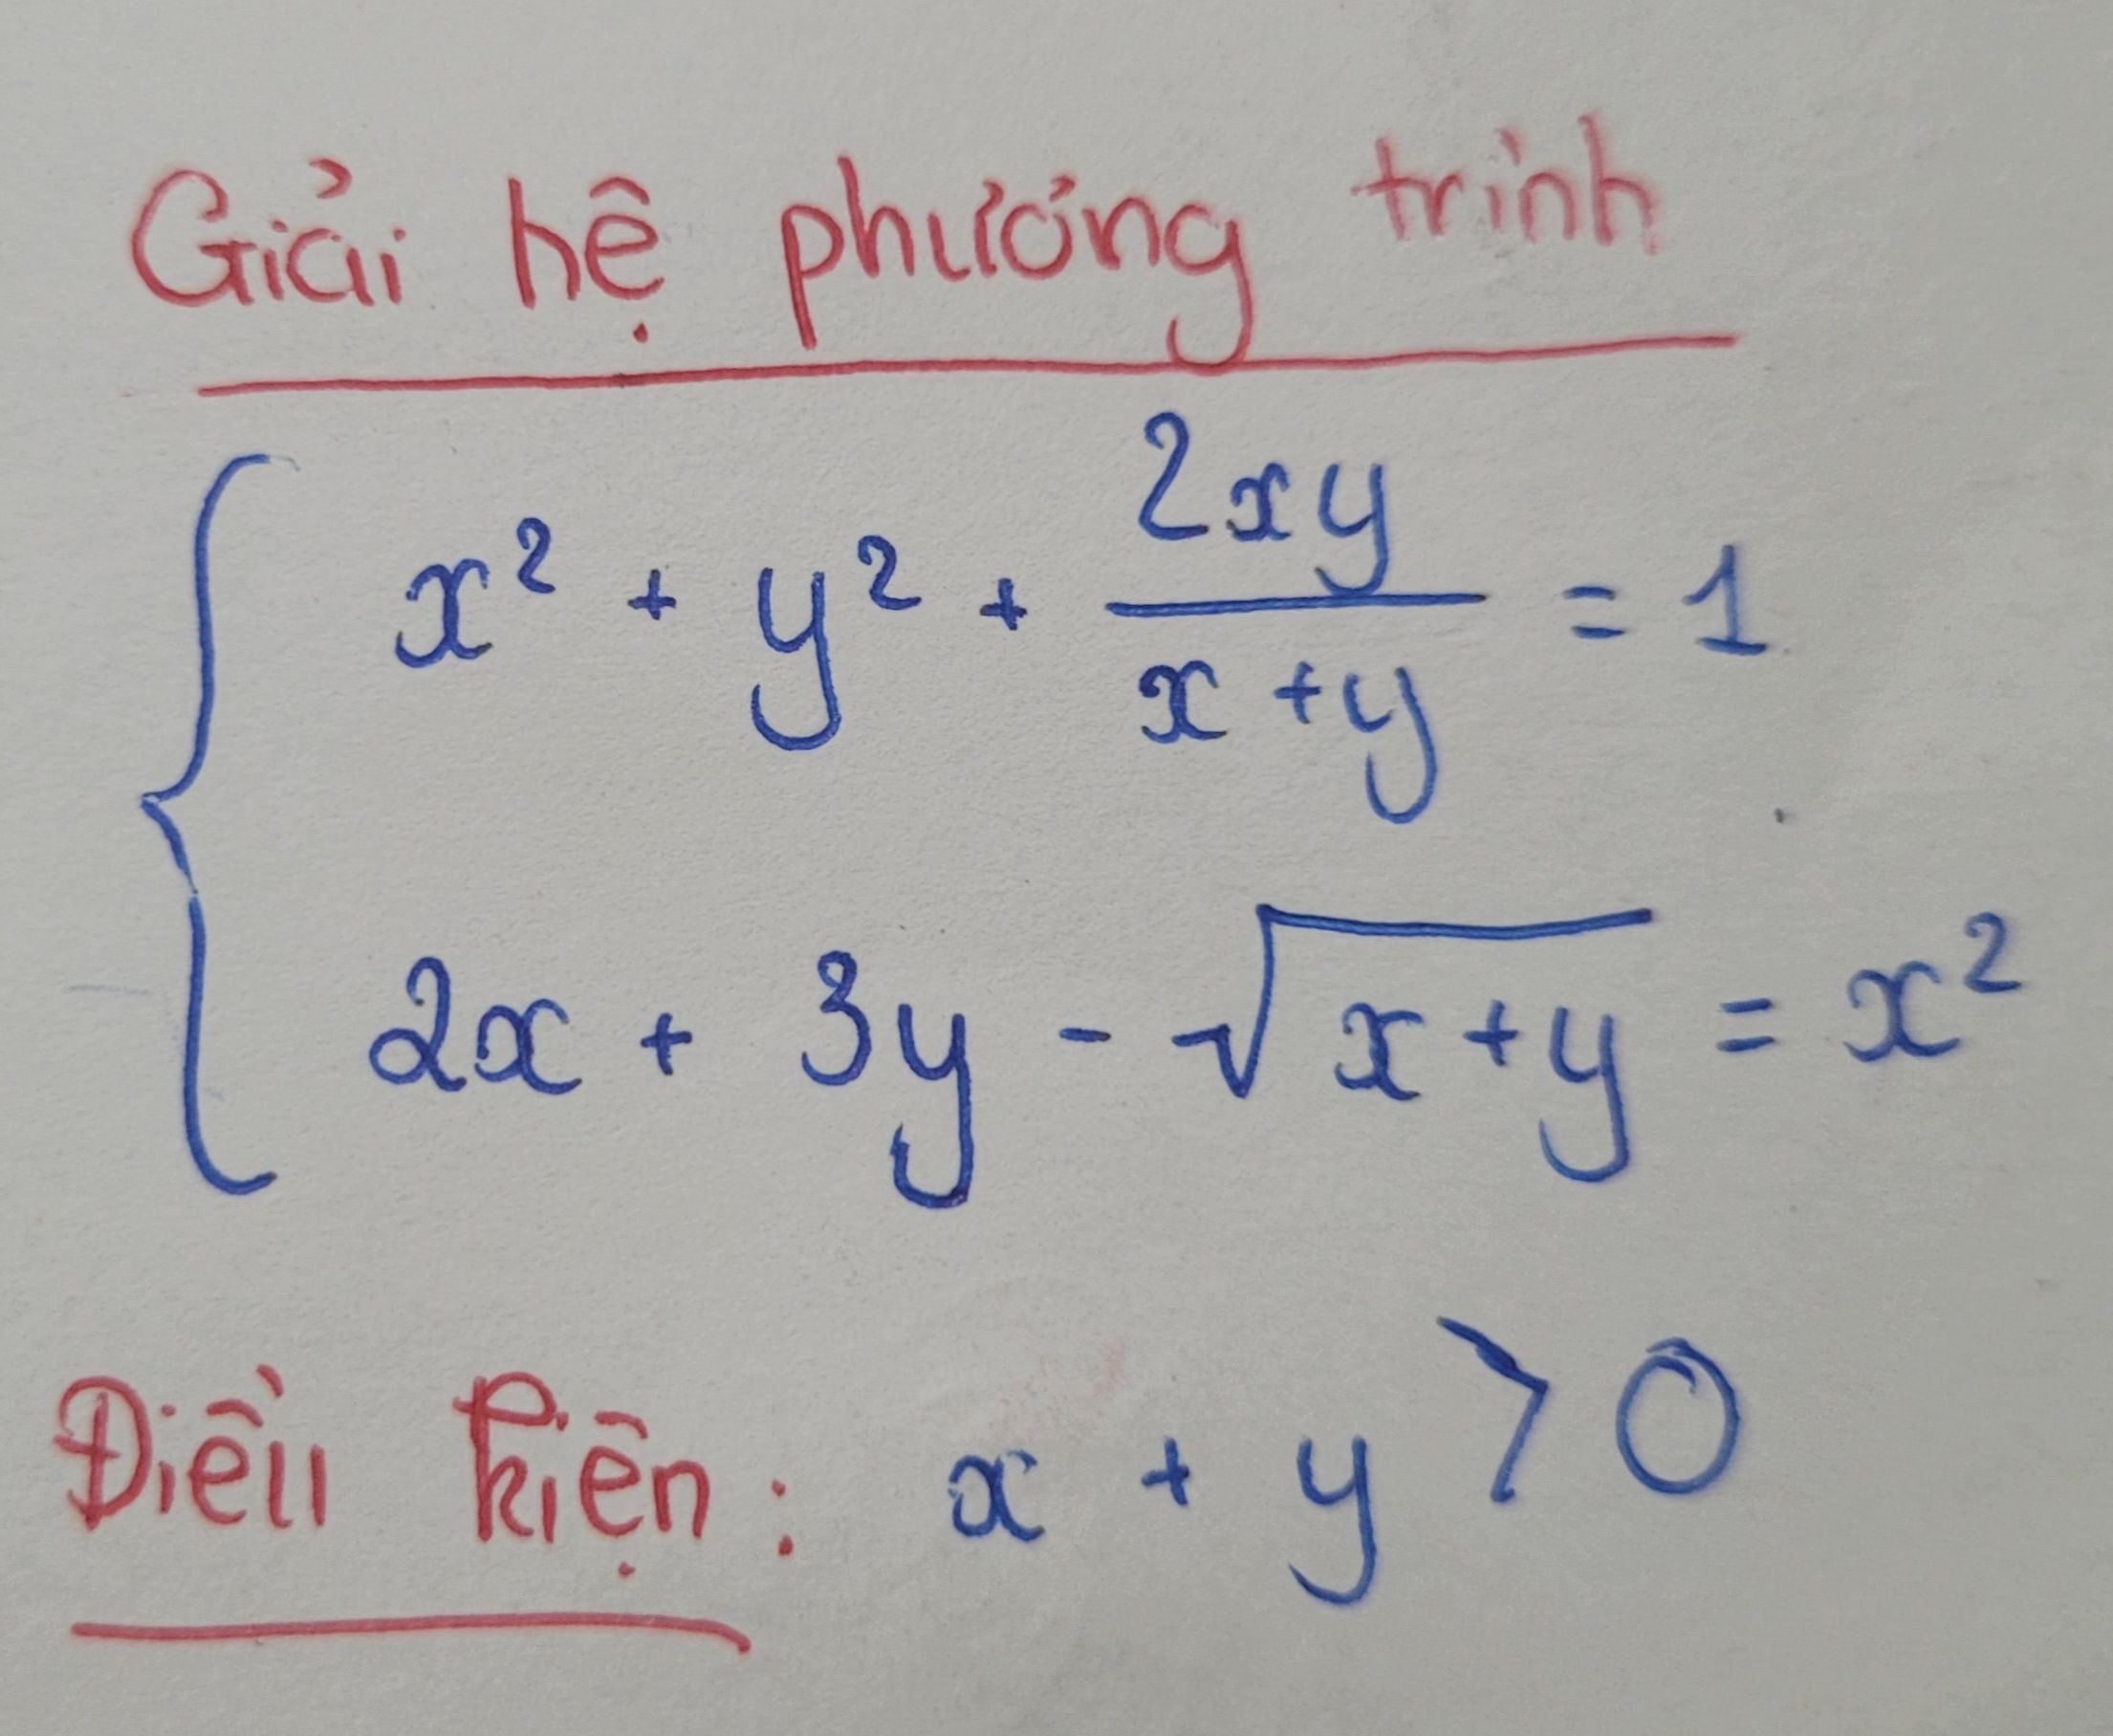 Giải hệ phương trình
x² + y² + 2xy/(x+y) = 1
2x + 3y - √(x+y) = x²
Điều kiện: x + y > 0